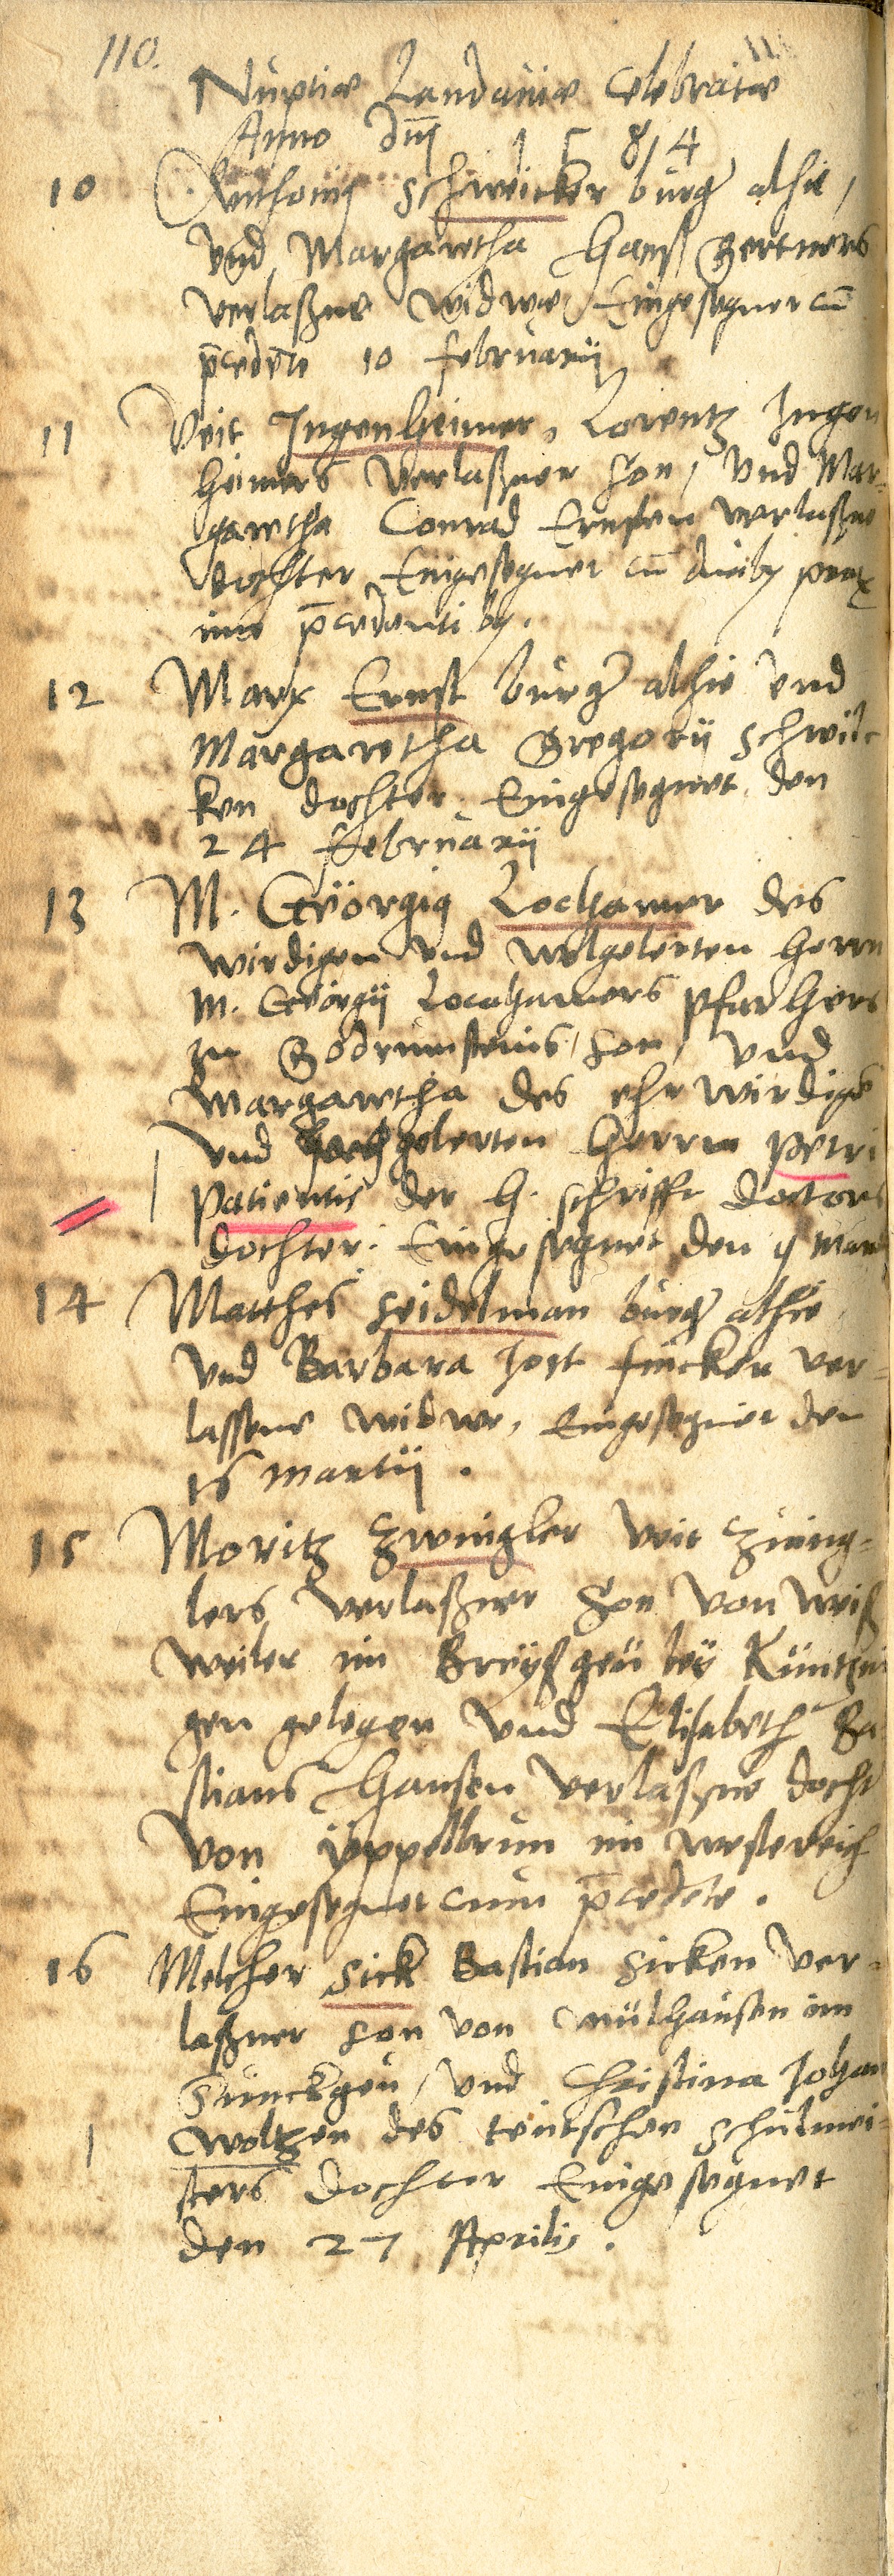 110.
Nuptiæ Landauiæ celebratæ
Anno dnj 1584
10 Anthonius Schweicker burger alhie,
vnd Margaretha Hans Gertners
verlaßne widwe Eingesegnet cū
p̄cedēti 10 februarij
11 Veit Ingenheimer, Lorentz Ingen
heimers verlaßner son, vnd Mar-
garetha Conrad Ernsten verlaßne
dochter Eingesegnet cū duabȝ prox
ime p̄cedentibȝ.
12 Marx Ernst burger alhie vnd
Margaretha Gregorij Schwil
ken dochter Eingesegnet den
24 februarij
13 M. Geörgiꝰ Lochamer des
wirdigen vnd wolgelerten herrn
M. Geörgij Locahamers pfarhers
zu Godrumsteins, son, vnd
Margaretha des ehrwirdigē
vnd hochgelerten herrn Petri
Patientis der H. schrifft doctors
dochter: Eingesegnet den 9 Mar
14 Matthes Seidelman burger alhie,
vnd Barbara Jost fincken ver-
lassene widwe, Eingesegnet den
16 martij.
15 Moritz Zwingler Veit Zwing-
lers verlaßner Son von Weiß
weiler im Breyßgeü bey Küntzin
gen gelegen vnd Elisabeth Ba
stians Hansen verlaßne docht
von Yppelbrun im westereich
Eingesegnet cum p̄cedēte.
16 Melcher Sick Bastian Sicken ver-
laßner son von Mülhausen im
Sunckgeü, vnd Christina Johan
Woltzen des teütschen schulmei-
sters dochter Eingesegnet
den 27 Aprilis.